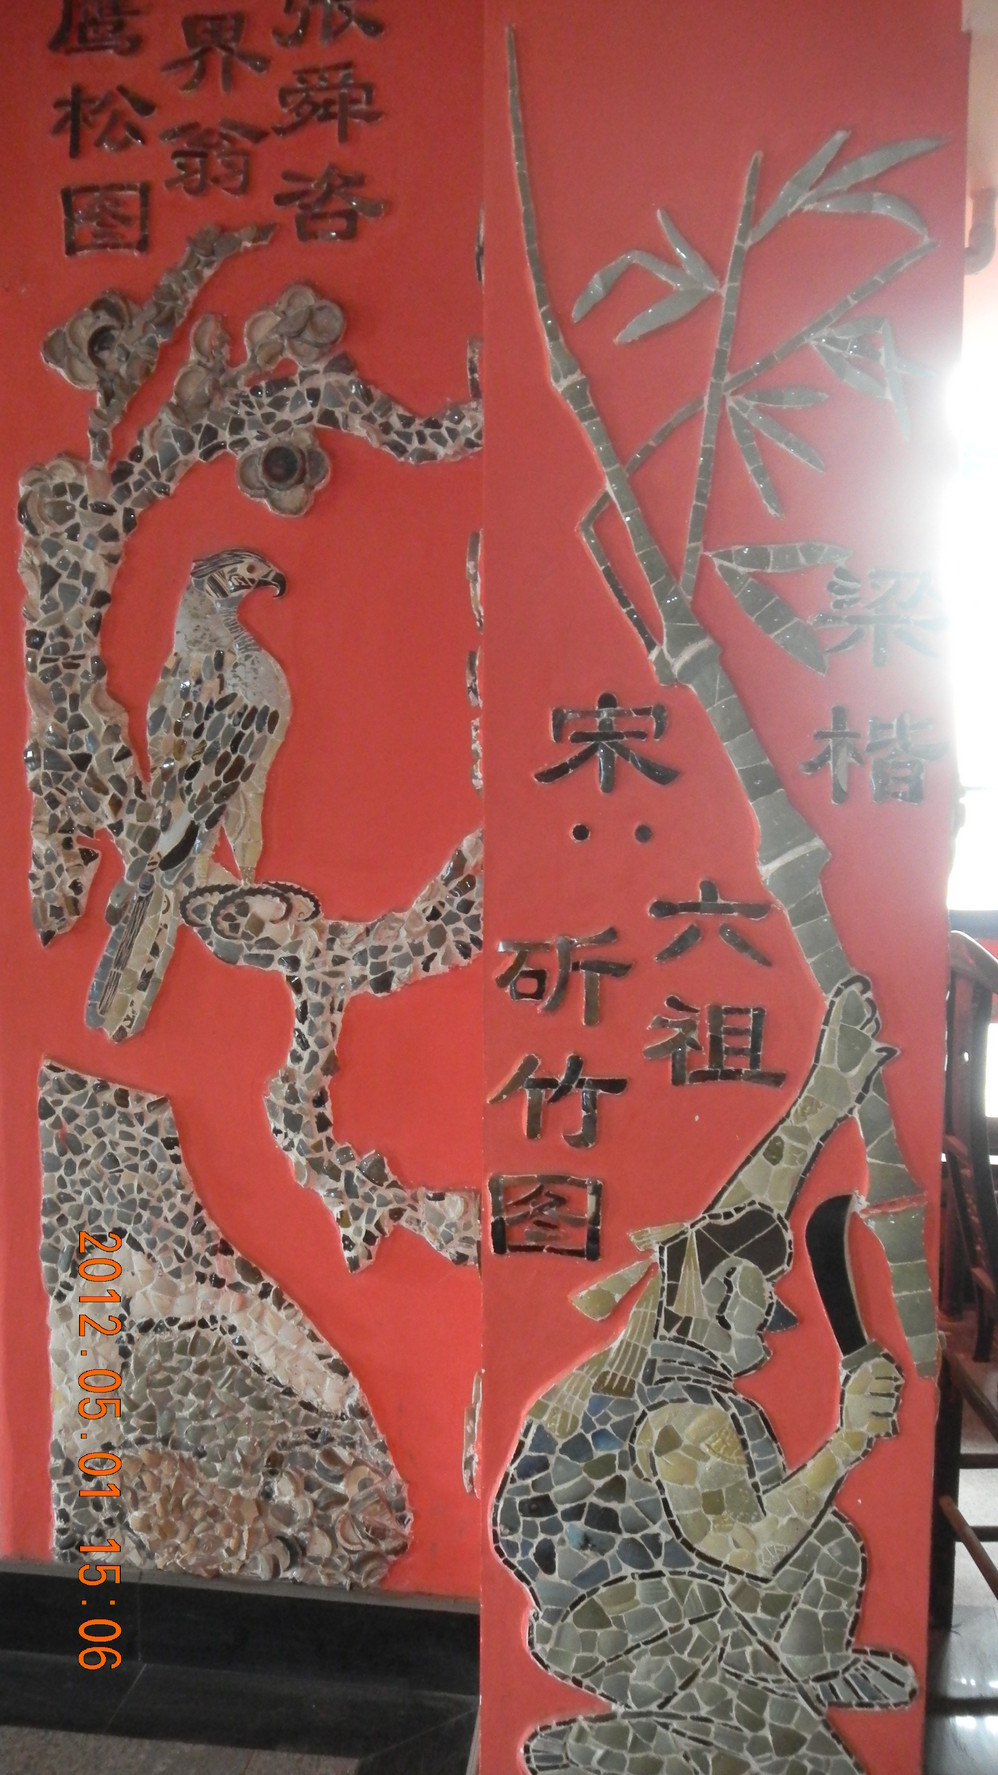 张舜咨
界翁
鹰松图
梁楷
宋：六祖
斫竹图
2012.05.01 15:06